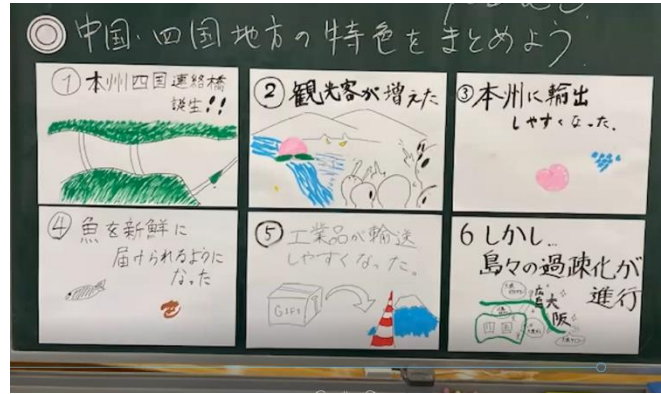 ◎ 中国・四国地方の特色をまとめよう
① 本州四国連絡橋
誕生!!
② 観光客が増えた
③ 本州に輸出
しやすくなった。
④ 魚を新鮮に
届けられるように
なった
⑤ 工業品が輸送
しやすくなった。
GIFT
6 しかし…
島々の過疎化が
進行
広島
大阪
四国